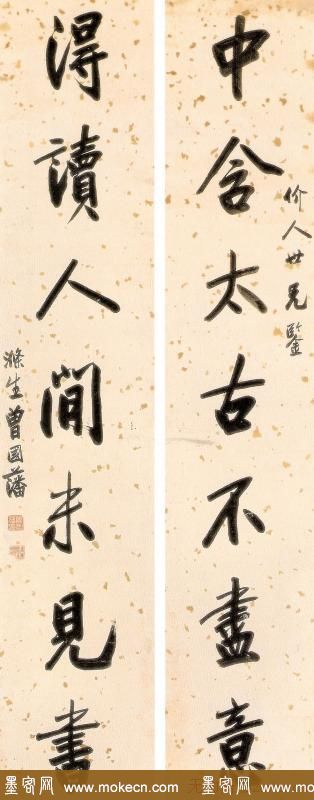 中含太古不盡意
价人世兄鑒
得讀人間未見書
滌生曾國藩
墨客网 www.mokecn.com 墨客网 www.mokecn.com